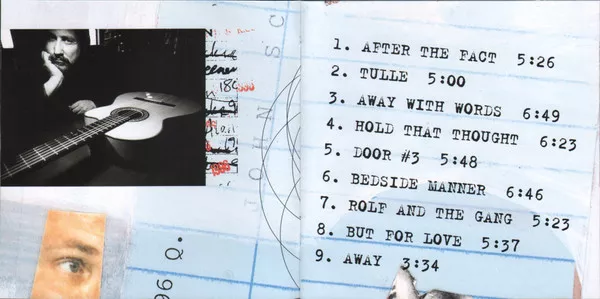 184
JOHN SC
96 Q.
1. AFTER THE FACT 5:26
2. TULLE 5:00
3. AWAY WITH WORDS 6:49
4. HOLD THAT THOUGHT 6:23
5. DOOR #3 5:48
6. BEDSIDE MANNER 6:46
7. ROLF AND THE GANG 5:23
8. BUT FOR LOVE 5:37
9. AWAY 3:34